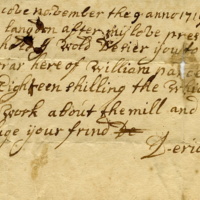 cove november the 9 anno 171
langdon after my love pres
th I wold desier you to
rar here of William parce
Eighteen shilling the Which
Work about the mill and
ige your frind
D-eric